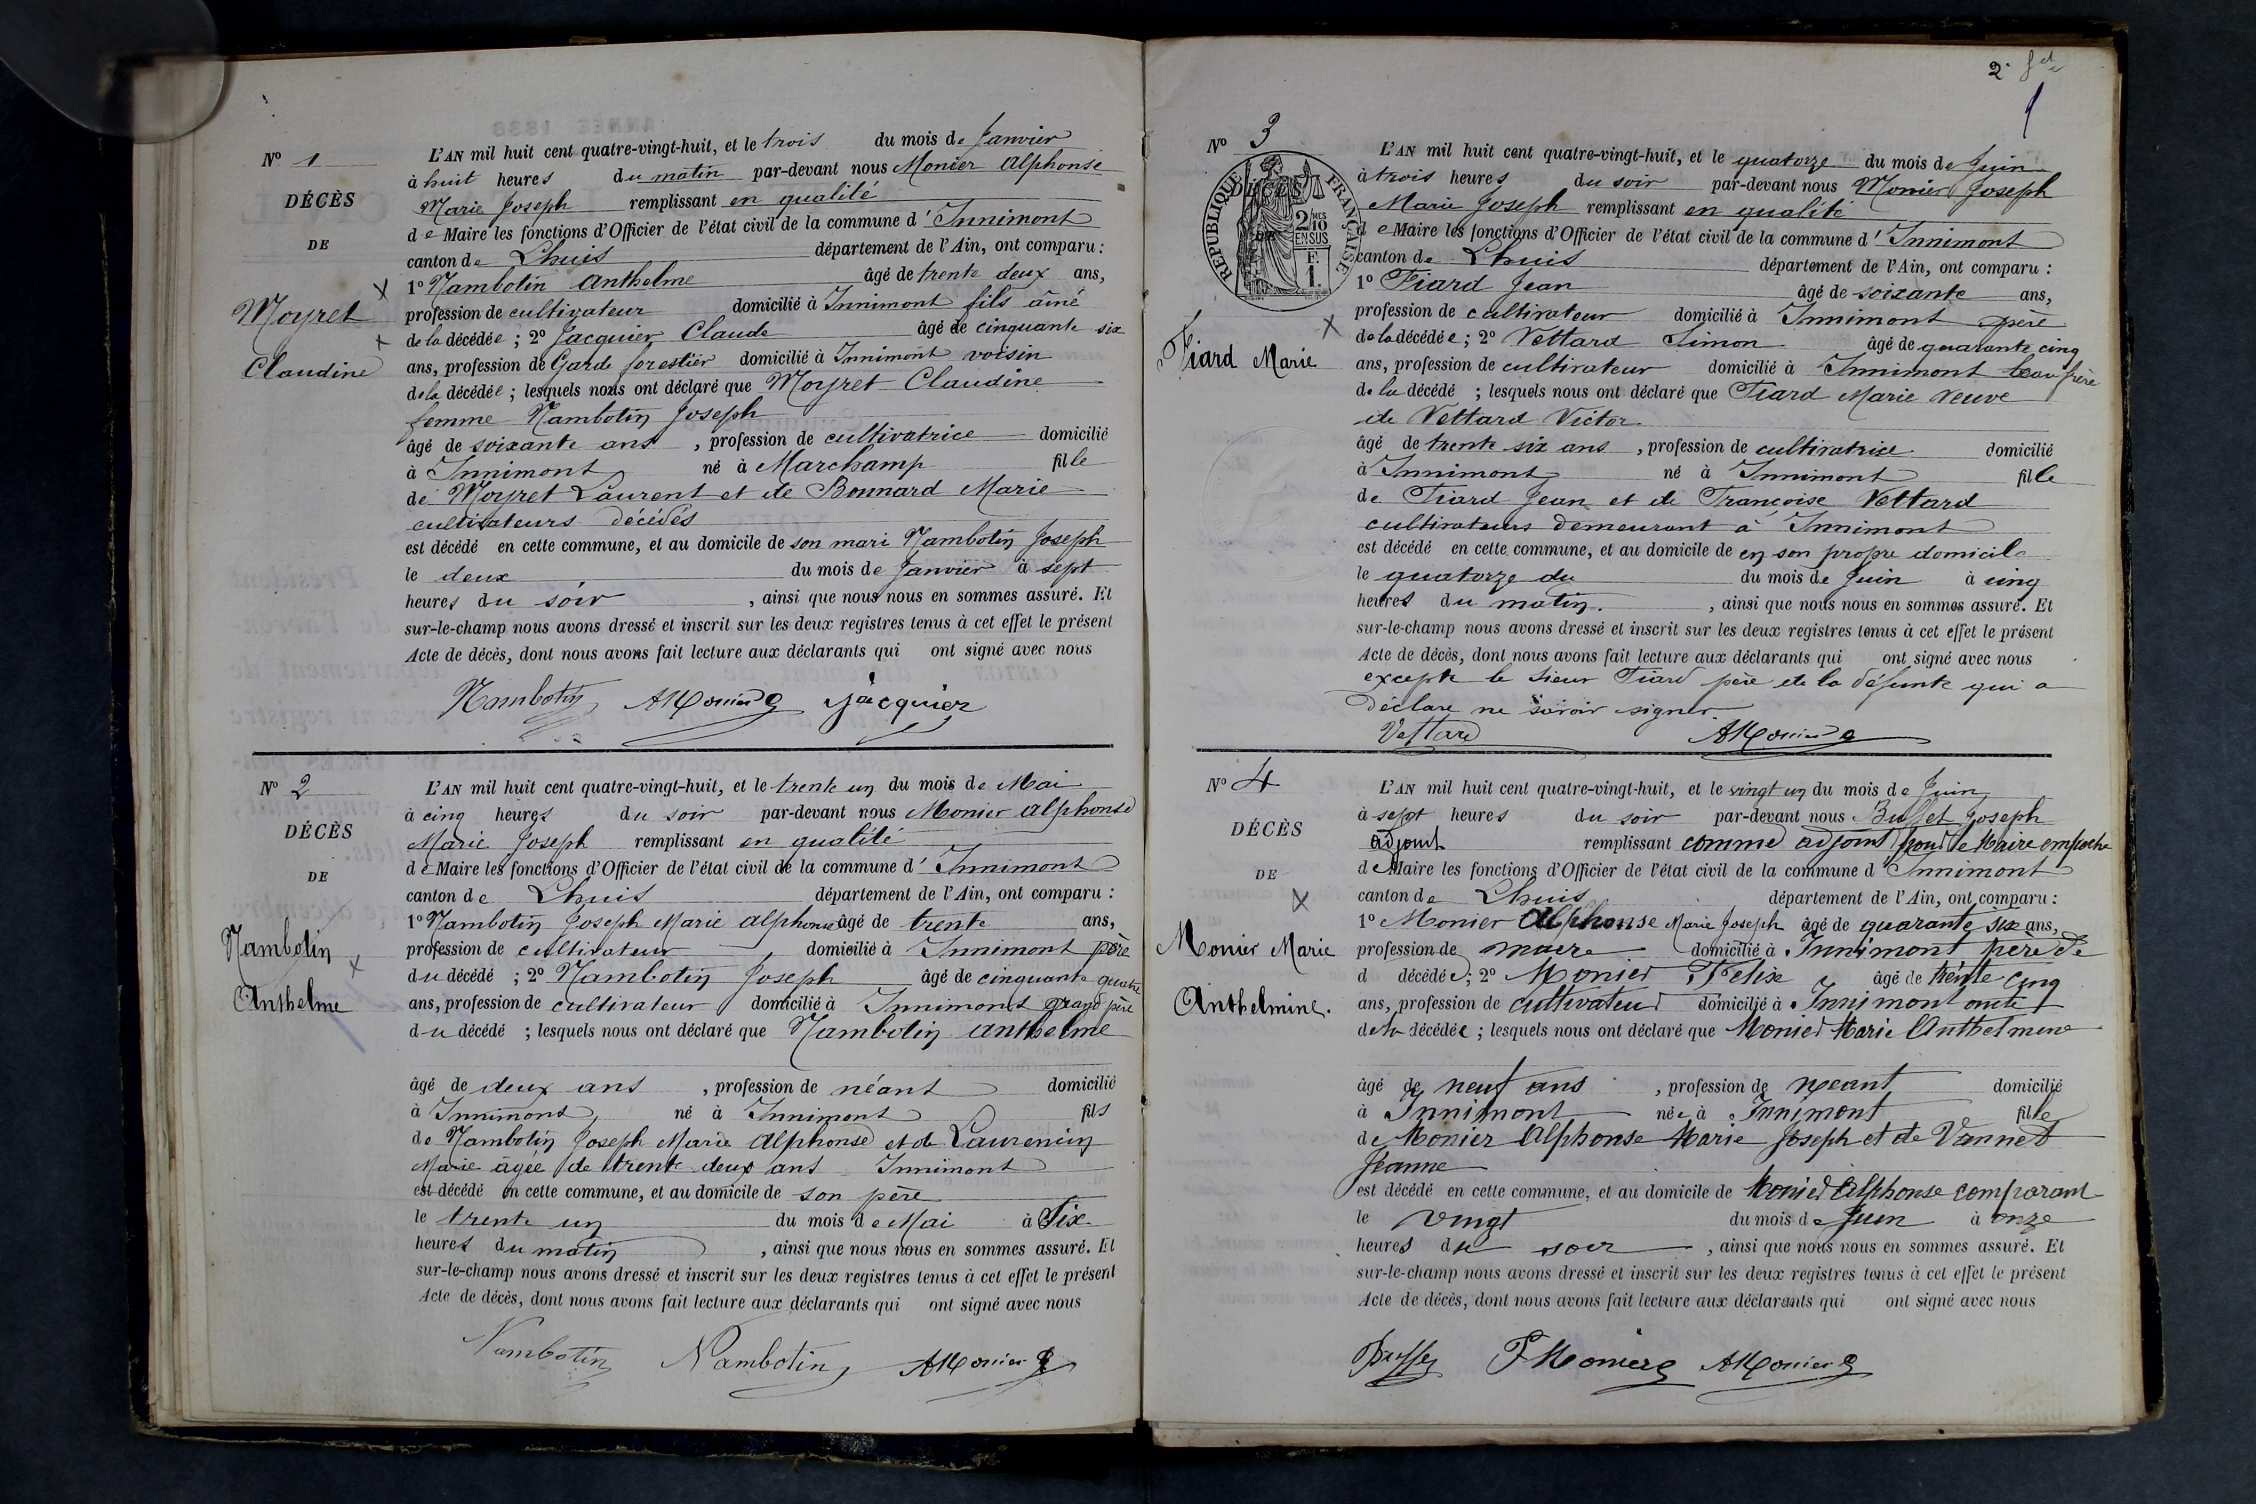 Nº 1
DÉCÈS
DE
Moyret
Claudine
L'AN mil huit cent quatre-vingt-huit, et le trois du mois de Janvier
à huit heures du matin par-devant nous Monier Alphonse
Marie Joseph remplissant en qualité
de Maire les fonctions d'Officier de l'état civil de la commune d'Innimont
canton de Lhuis département de l'Ain, ont comparu :
1º Nambotin Anthelme âgé de trente deux ans,
profession de cultivateur domicilié à Innimont fils aîné
de la décédée ; 2º Jacquier Claude âgé de cinquante six
ans, profession de Garde forestier domicilié à Innimont voisin
de la décédée ; lesquels nous ont déclaré que Moyret Claudine
femme Nambotin Joseph
âgé de soixante ans , profession de cultivatrice domicilié
à Innimont né à Marchamp fille
de Moyret Laurent et de Bonnard Marie
cultivateurs décédés
est décédé en cette commune, et au domicile de son mari Nambotin Joseph
le deux du mois de Janvier à sept
heures du soir , ainsi que nous nous en sommes assuré. Et
sur-le-champ nous avons dressé et inscrit sur les deux registres tenus à cet effet le présent
Acte de décès, dont nous avons fait lecture aux déclarants qui ont signé avec nous
Nambotin AMonier Jacquier
Nº 2
DÉCÈS
DE
Nambotin
Anthelme
L'AN mil huit cent quatre-vingt-huit, et le trente un du mois de Mai
à cinq heures du soir par-devant nous Monier Alphonse
Marie Joseph remplissant en qualité
de Maire les fonctions d'Officier de l'état civil de la commune d'Innimont
canton de Lhuis département de l'Ain, ont comparu :
1º Nambotin Joseph Marie Alphonse âgé de trente ans,
profession de cultivateur domicilié à Innimont père
du décédé ; 2º Nambotin Joseph âgé de cinquante quatre
ans, profession de cultivateur domicilié à Innimont grand père
du décédé ; lesquels nous ont déclaré que Nambotin Anthelme
âgé de deux ans , profession de néant domicilié
à Innimont né à Innimont fils
de Nambotin Joseph Marie Alphonse et de Laurencin
Marie âgée de trente deux ans Innimont
est décédé en cette commune, et au domicile de son père
le trente un du mois de Mai à Six
heures du matin , ainsi que nous nous en sommes assuré. Et
sur-le-champ nous avons dressé et inscrit sur les deux registres tenus à cet effet le présent
Acte de décès, dont nous avons fait lecture aux déclarants qui ont signé avec nous
Nambotin Nambotin AMonier
2
Nº 3
RÉPUBLIQUE FRANÇAISE
2/10 EN SUS
F. 1.
Fiard Marie
L'AN mil huit cent quatre-vingt-huit, et le quatorze du mois de Juin
à trois heures du soir par-devant nous Monier Joseph
Marie Joseph remplissant en qualité
de Maire les fonctions d'Officier de l'état civil de la commune d'Innimont
canton de Lhuis département de l'Ain, ont comparu :
1º Fiard Jean âgé de soixante ans,
profession de cultivateur domicilié à Innimont père
de la décédée ; 2º Vettard Simon âgé de quarante cinq
ans, profession de cultivateur domicilié à Innimont beau frère
de la décédé ; lesquels nous ont déclaré que Fiard Marie veuve
de Vettard Victor
âgé de trente six ans , profession de cultivatrice domicilié
à Innimont né à Innimont fille
de Fiard Jean et de Françoise Vettard
cultivateurs demeurant à Innimont
est décédé en cette commune, et au domicile de en son propre domicile
le quatorze du du mois de Juin à cinq
heures du matin. , ainsi que nous nous en sommes assuré. Et
sur-le-champ nous avons dressé et inscrit sur les deux registres tenus à cet effet le présent
Acte de décès, dont nous avons fait lecture aux déclarants qui ont signé avec nous
excepté le sieur Fiard père de la défunte qui a
déclare ne savoir signer.
Vettard AMonier
Nº 4
DÉCÈS
DE
Monier Marie
Anthelmine.
L'AN mil huit cent quatre-vingt-huit, et le vingt un du mois de Juin
à sept heures du soir par-devant nous Buffet Joseph
adjoint remplissant comme adjoint pour le Maire empeché
de Maire les fonctions d'Officier de l'état civil de la commune d'Innimont
canton de Lhuis département de l'Ain, ont comparu :
1º Monier Alphonse Marie Joseph âgé de quarante six ans,
profession de maire domicilié à Innimont père de
d décédée ; 2º Monier Felix âgé de trente cinq
ans, profession de cultivateur domicilié à Innimont oncle
de la décédée ; lesquels nous ont déclaré que Monier Marie Anthelmine
âgé de neuf ans , profession de neant domicilié
à Innimont née à Innimont fille
de Monier Alphonse Marie Joseph et de Vannet
Jeanne
est décédé en cette commune, et au domicile de Monier Alphonse comparant
le vingt du mois de Juin à onze
heures du soir , ainsi que nous nous en sommes assuré. Et
sur-le-champ nous avons dressé et inscrit sur les deux registres tenus à cet effet le présent
Acte de décès, dont nous avons fait lecture aux déclarants qui ont signé avec nous
FMonier AMonier